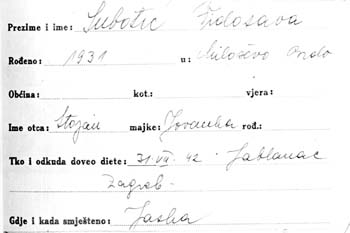 Prezime i ime: Subotić Vidosava
Rođeno: 1931 u: Miloševo Brdo
Općina: kot.: vjera:
Ime otca: Stojan majke: Jovanka rod.:
Tko i odkuda doveo diete: 31.VII. 42 - Jablanac
Zagreb -
Gdje i kada smješteno: Jaska